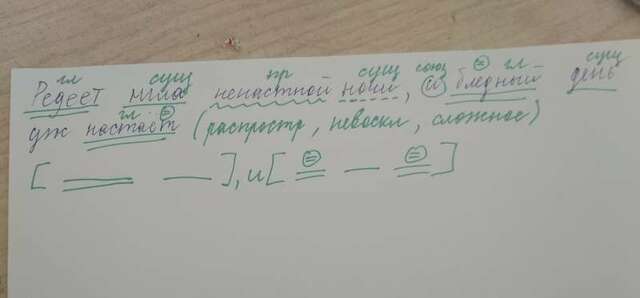 гл сущ пр сущ союз гл сущ
Редеет мгла ненастной ночи, и бледный день
гл
уж настаёт (распростр, невоскл, сложное)
[ ], и [ ]